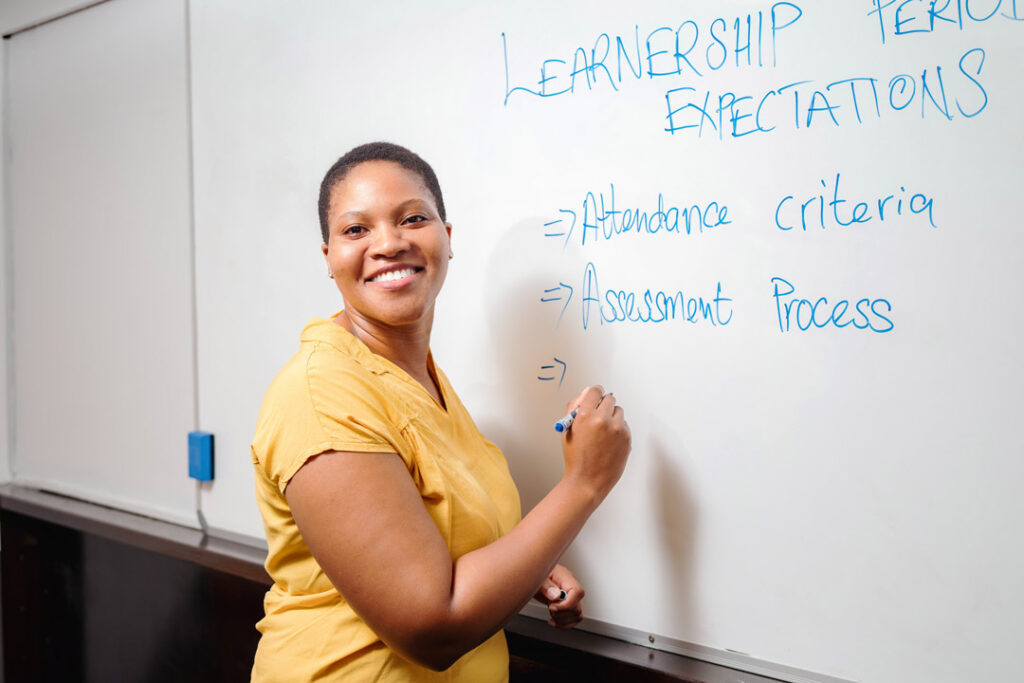 LEARNERSHIP PERIOD
EXPECTATIONS
=> Attendance criteria
=> Assessment Process
=>